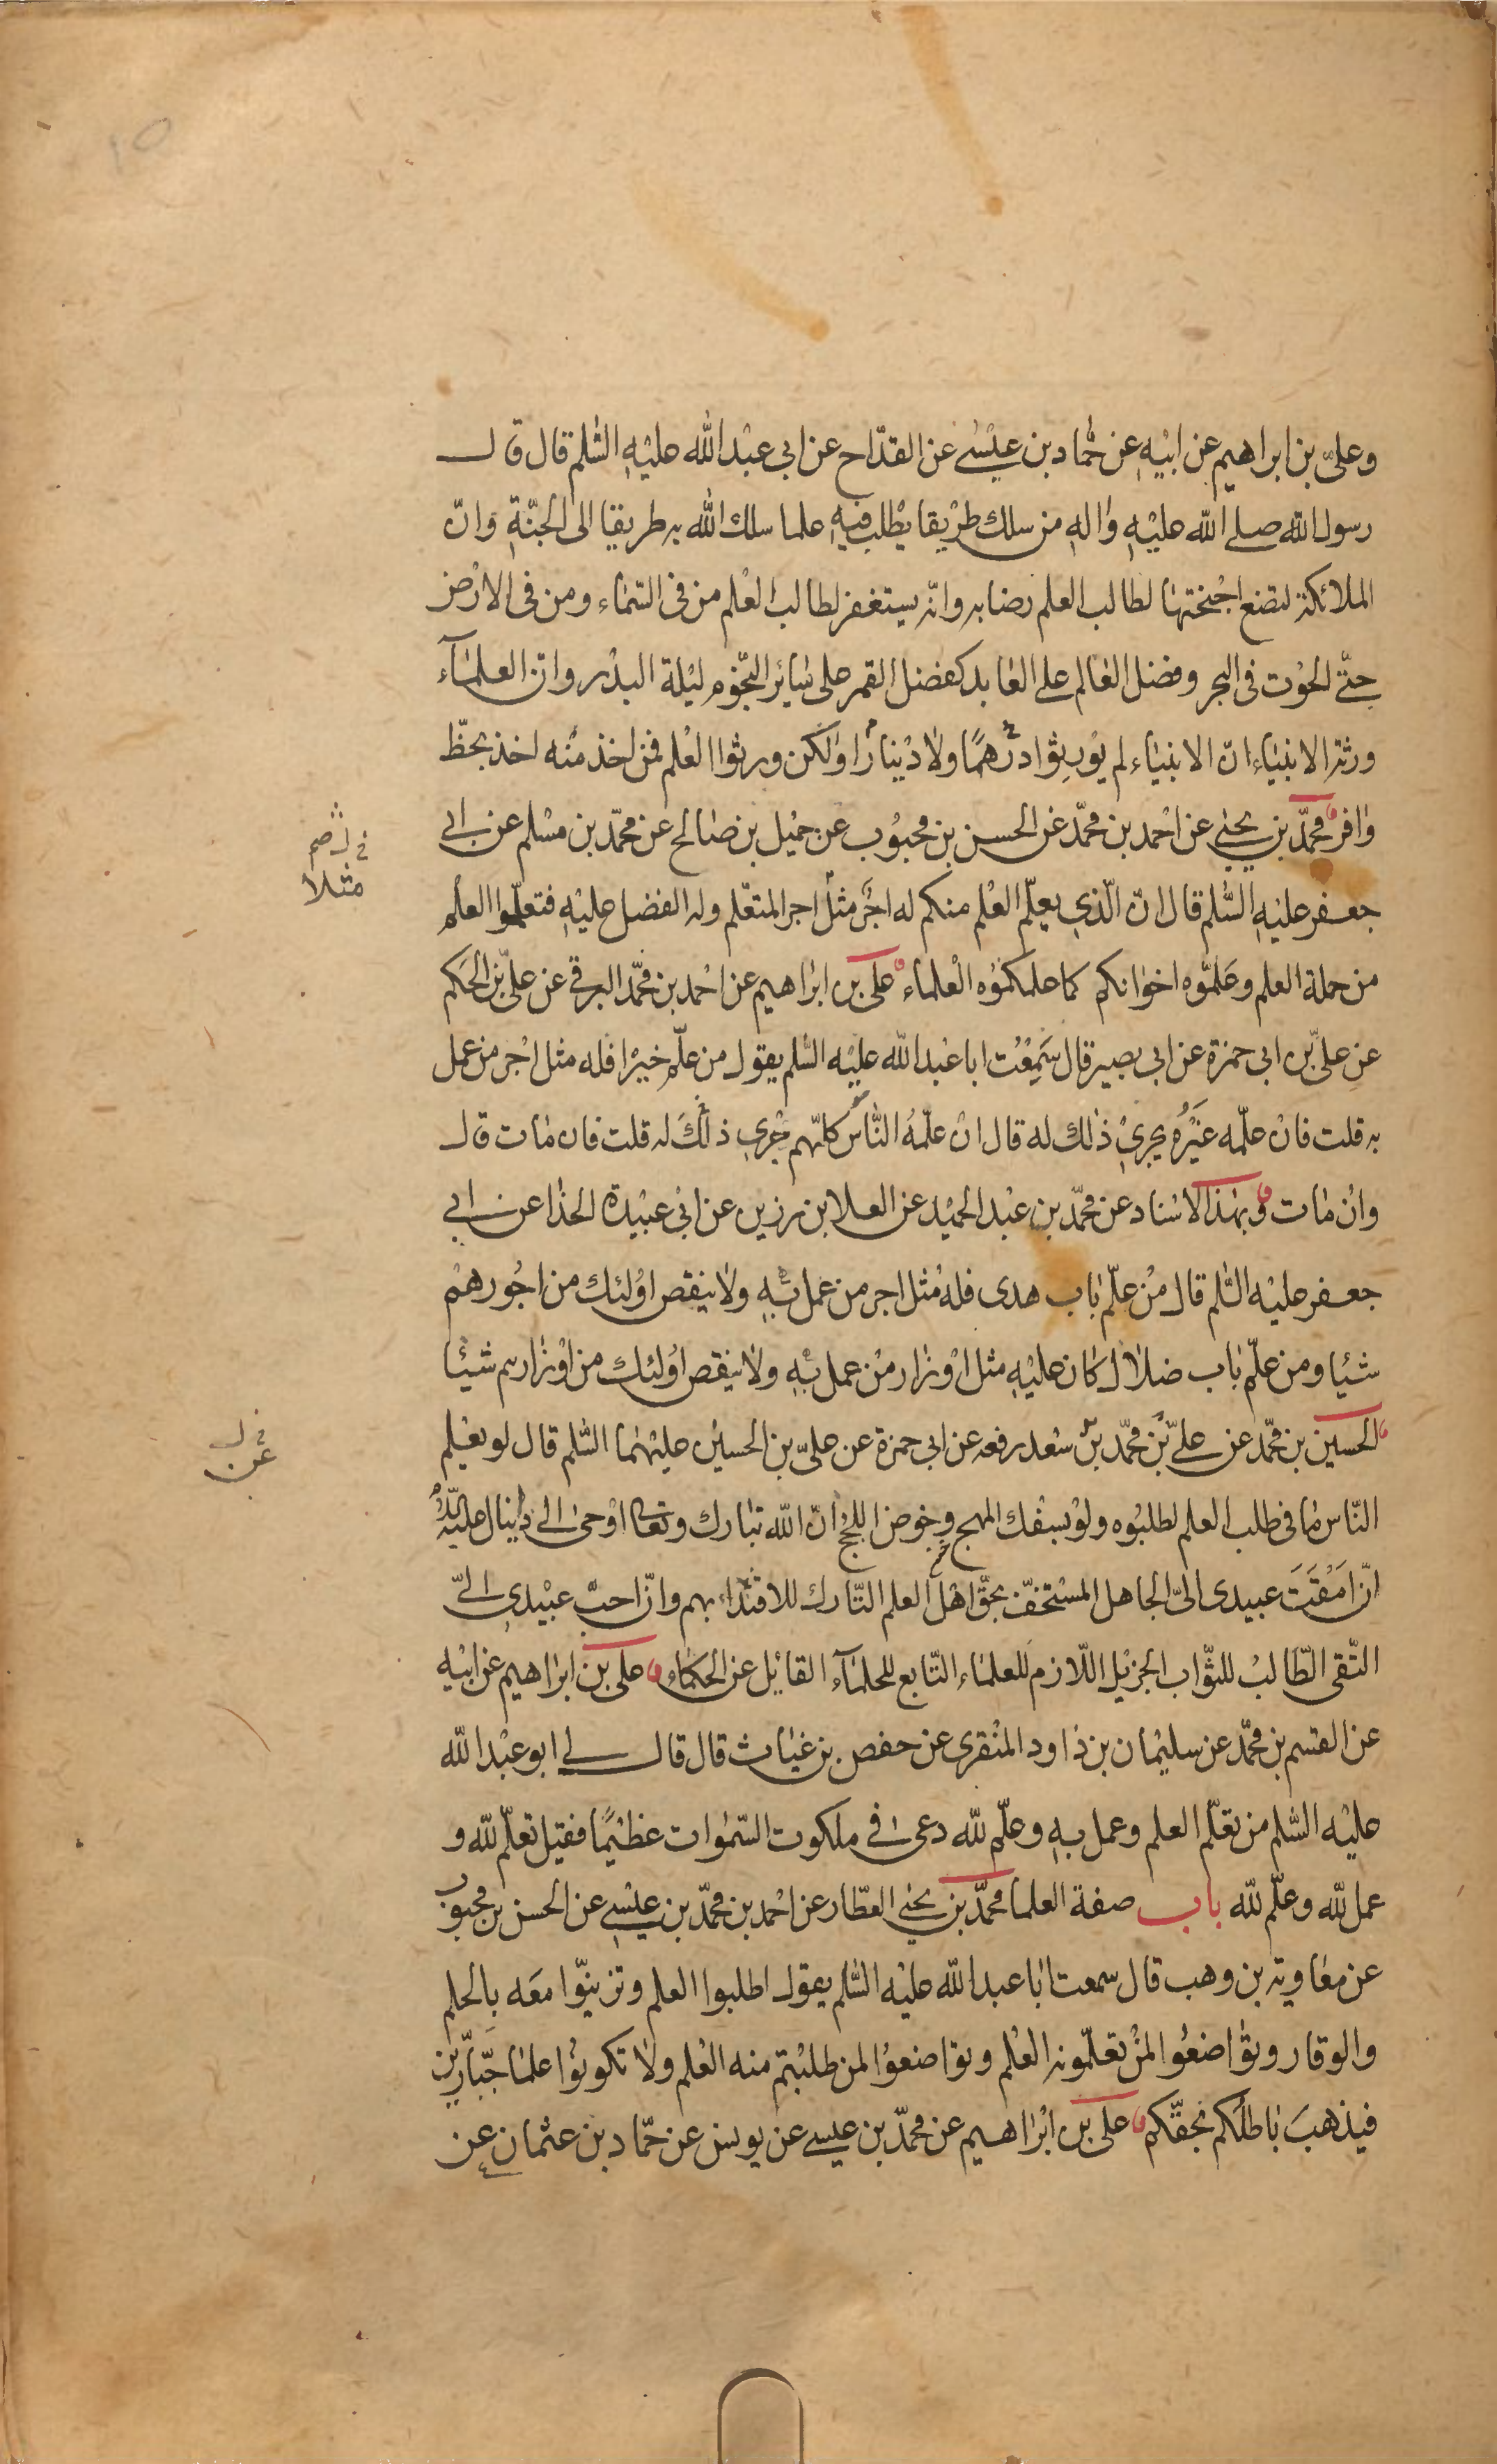 وعليّ بن ابراهيم عن ابيه عن حماد بن عيسى عن القدّاح عن ابي عبد الله عليه السّلم قال قال
رسول الله صلى الله عليه واله من سلك طريقا يطلب فيه علما سلك الله به طريقا الى الجنّة وانّ
الملائكة لتضع اجنحتها لطالب العلم رضا به وانّه يستغفر لطالب العلم من في السّماء ومن في الارض
حتّى الحوت في البحر وفضل العالم على العابد كفضل القمر على سائر النّجوم ليلة البدر وانّ العلمآء
ورثة الانبياء انّ الانبياء لم يورثوا درهمًا ولا دينارًا ولكن ورثوا العلم فمن اخذ منه اخذ بحظّ
وافر محمّد بن يحيى عن احمد بن محمّد عن الحسن بن محبوب عن جميل بن صالح عن محمّد بن مسلم عن ابي
جعفر عليه السّلم قال انّ الّذي يعلّم العلم منكم له اجر مثل اجر المتعلّم وله الفضل عليه فتعلّموا العلم
من حملة العلم وعلّموه اخوانكم كما علمكموه العلماء علي بن ابراهيم عن احمد بن محمّد البرقي عن عليّ بن الحكم
عن عليّ بن ابي حمزة عن ابي بصير قال سمعت ابا عبد الله عليه السّلم يقول من علّم خيرا فله مثل اجر من عمل
به قلت فان علّمه غيره يجري ذلك له قال ان علّمه النّاس كلّهم جرى ذلك له قلت فان مات قال
وان مات وبهذا الاسناد عن محمّد بن عبد الحميد عن العلا بن رزين عن ابي عبيدة الحذا عن ابي
جعفر عليه السّلم قال من علّم باب هدى فله مثل اجر من عمل به ولا ينقص اولئك من اجورهم
شيئا ومن علّم باب ضلال كان عليه مثل اوزار من عمل به ولا ينقص اولئك من اوزارهم شيئا
الحسين بن محمّد عن عليّ بن محمّد بن سعد رفعه عن ابي حمزة عن عليّ بن الحسين عليهما السّلم قال لو يعلم
النّاس ما في طلب العلم لطلبوه ولو بسفك المهج وخوض اللجج انّ الله تبارك وتعالى اوحى الى دانيال عليه
انّ امقت عبيدي اليّ الجاهل المستخفّ بحقّ اهل العلم التّارك للاقتداء بهم وانّ احبّ عبيدي اليّ
التّقي الطّالب للثّواب الجزيل اللّازم للعلماء التّابع للحلمآء القائل عن الحكماء علي بن ابراهيم عن ابيه
عن القسم بن محمّد عن سليمان بن داود المنقري عن حفص بن غياث قال قال لي ابو عبد الله
عليه السّلم من تعلّم العلم وعمل به وعلّم لله دعى في ملكوت السّموات عظيمًا فقيل تعلّم لله و
عمل لله وعلّم لله باب صفة العلما محمّد بن يحيى العطّار عن احمد بن محمّد بن عيسى عن الحسن بن محبوب
عن معاوية بن وهب قال سمعت ابا عبد الله عليه السّلم يقول اطلبوا العلم وتزيّنوا معه بالحلم
والوقار وتواضعوا لمن تعلّمونه العلم وتواضعوا لمن طلبتم منه العلم ولا تكونوا علما جبّارين
فيذهب باطلكم بحقّكم علي بن ابراهيم عن محمّد بن عيسى عن يونس عن حمّاد بن عثمان عن
مثلا
عن